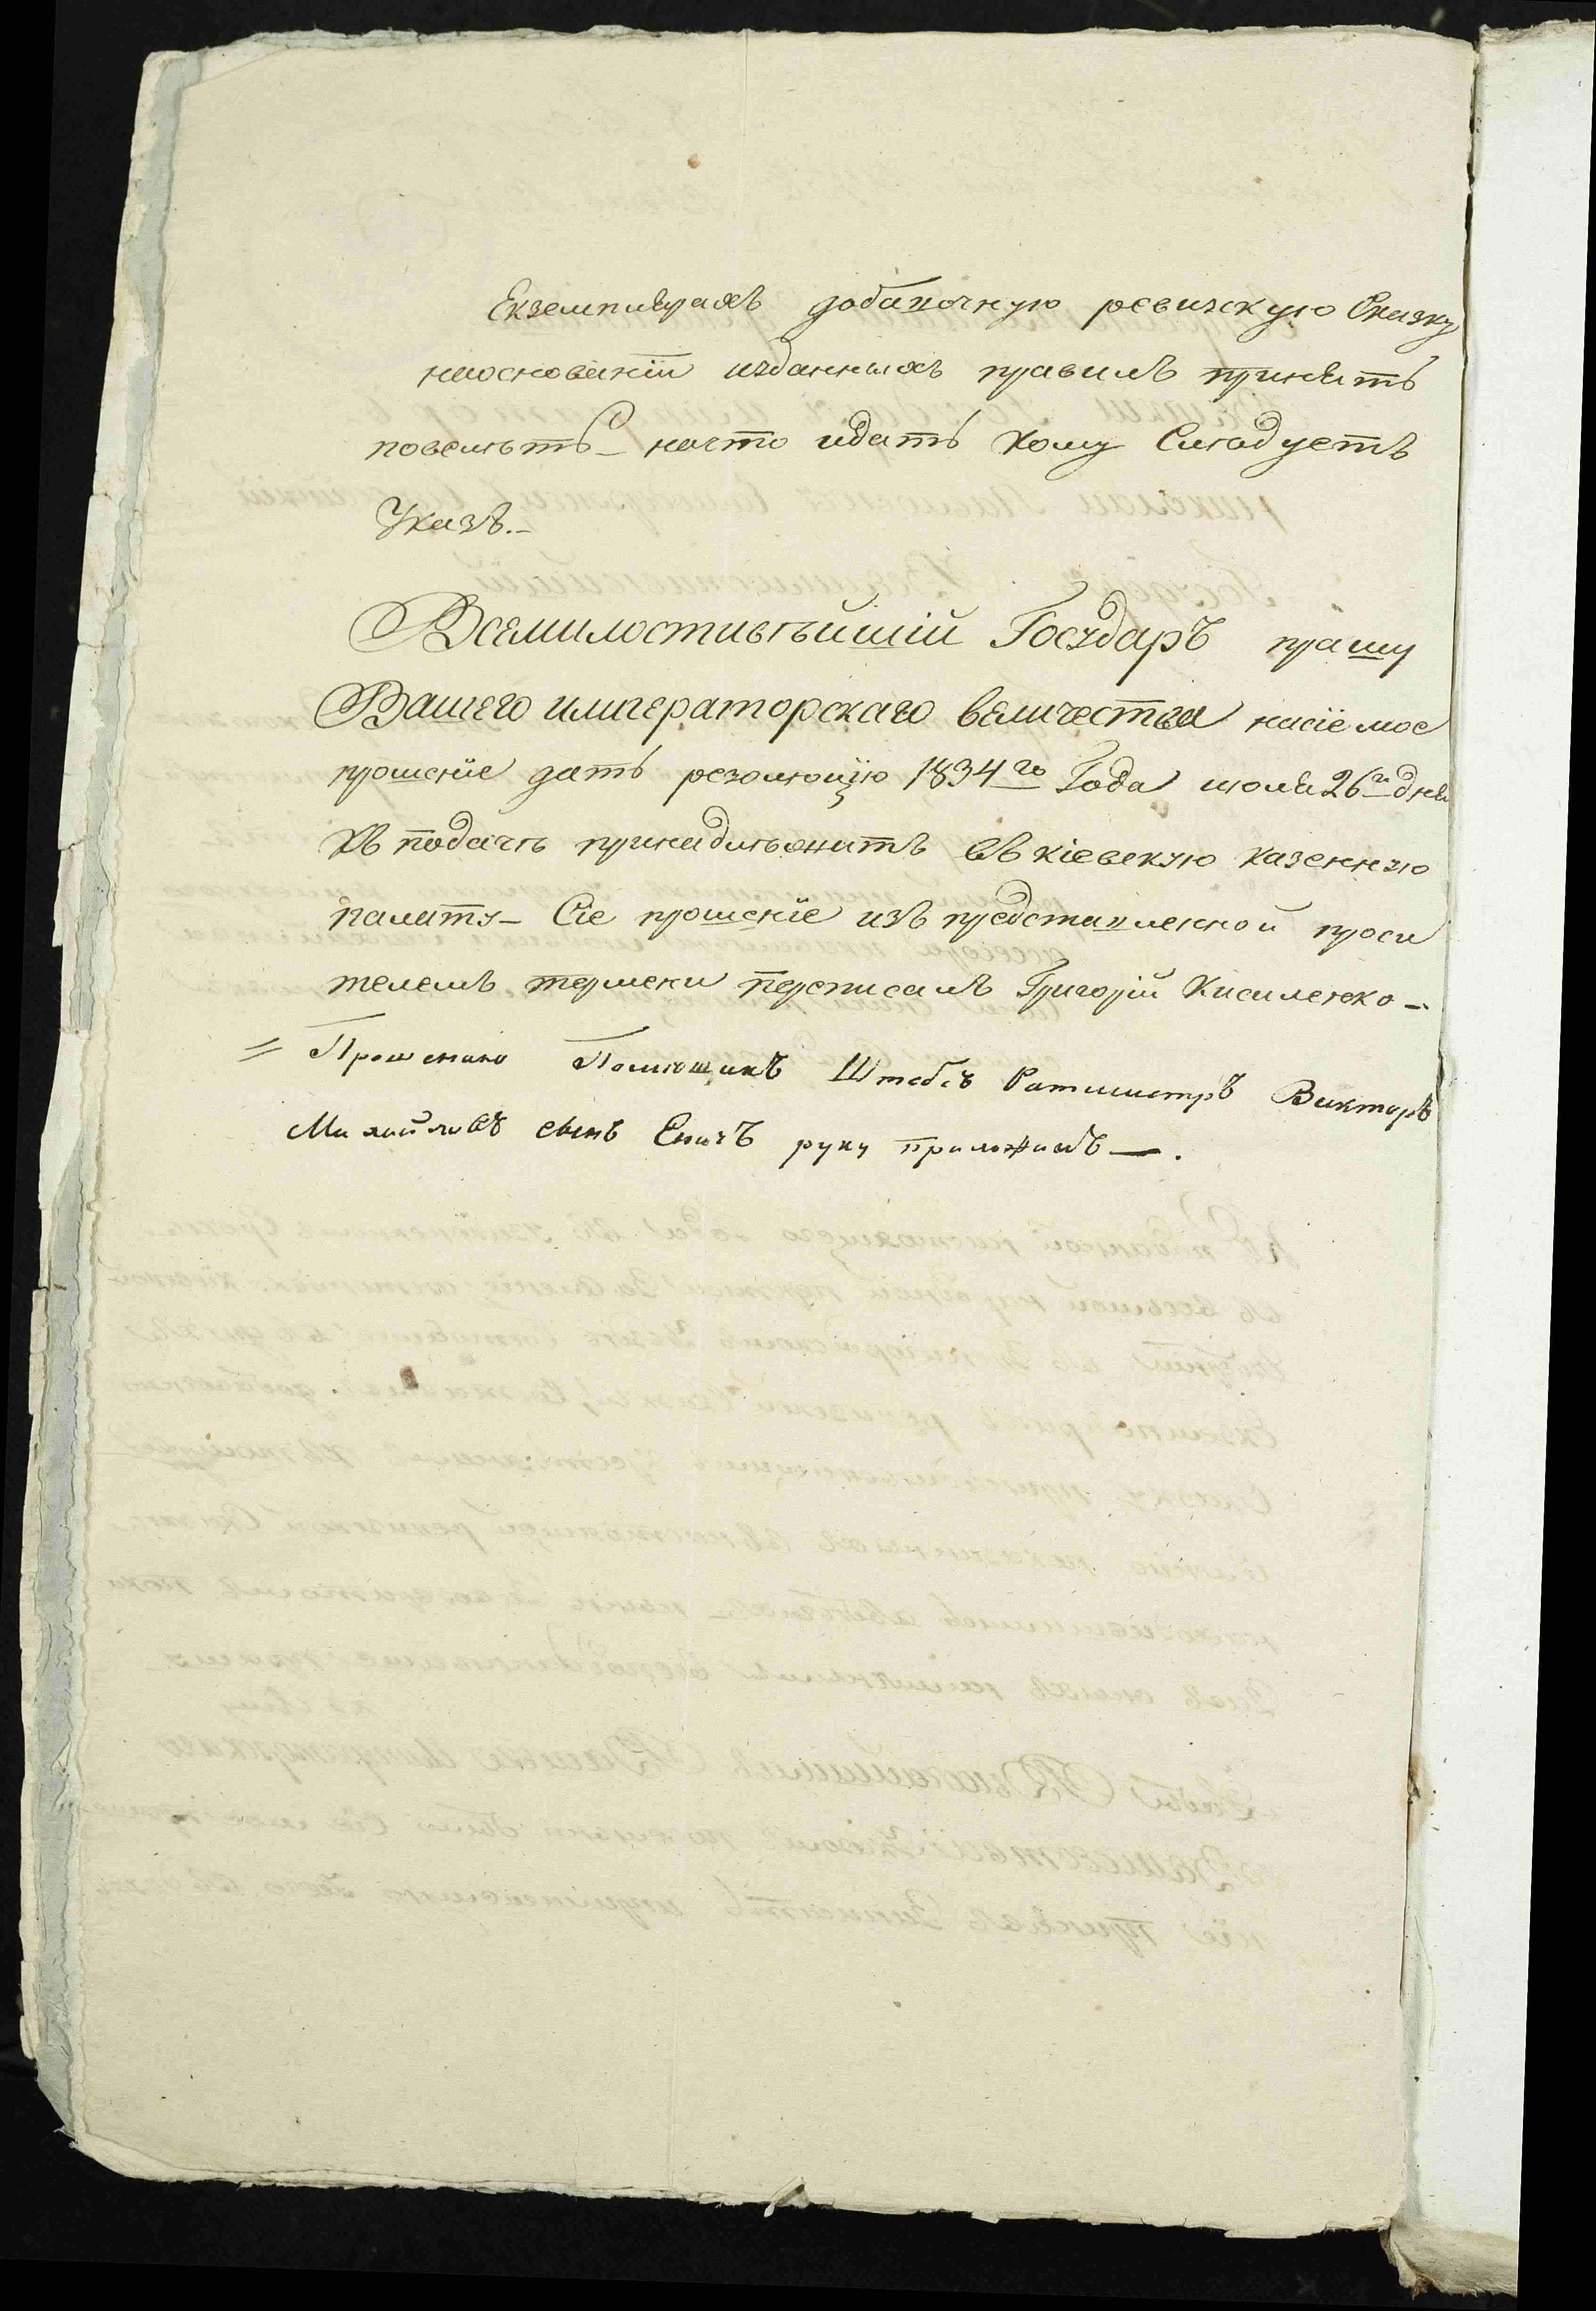 Екземплярахъ добавочную ревизскую Сказку
наосновании изданныхъ правилъ принять
повелѣть_ начто идать кому Слѣдуетъ
Указъ._
Всемилостивѣйшій Государъ прашу
Вашего императорскаго величества насіе мое
прошеніе дать резолюцію 1834го Года июля 26го дня
Къ подачѣ принадлѣжитъ въ кіевскую казенную
палату_ Сіе прошеніе изъ представленной проси
телемъ термени переписалъ Григорій Кисиленко_
= Прошению Помѣщикъ Штабсъ Ратмистръ Викторъ
Михайловъ сынъ руку приложилъ —.